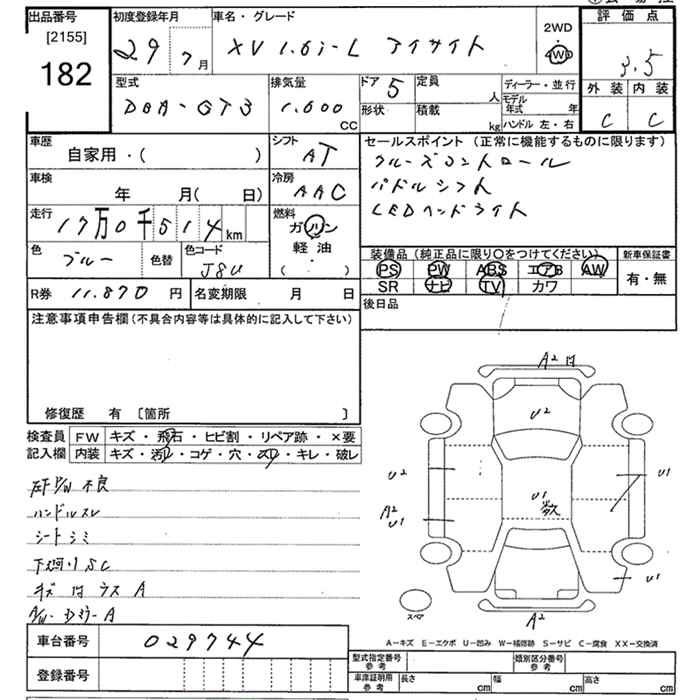 出品番号 初度登録年月 車名・グレード 2WD 評価点
[2155] 29年 7月 XV 1.6i-L アイサイト 4WD 3.5
182
型式 排気量 ドア 5 定員 人 ディーラー・並行 外装 内装
DBA-GT3 1.600 CC 形状 積載 kg モデル年式 年 C C
ハンドル 左・右
車歴 シフト セールスポイント(正常に機能するものに限ります)
自家用・( ) AT クルーズコントロール
車検 冷房 パドルシフト
年 月( 日) AAC LEDヘッドライト
走行 燃料
17万0千514km ガソリン
軽油
( )
色 ブルー 色替 色コード J8U
装備品(純正品に限り○をつけてください) 新車保証書
PS PW ABS エアB AW 有・無
SR ナビ TV カワ
R券 11.870円 名変期限 月 日
後日品
注意事項申告欄(不具合内容等は具体的に記入して下さい)
修復歴 有 [箇所 ]
検査員 FW キズ・飛石・ヒビ割・リペア跡・×要
記入欄 内装 キズ・汚レ・コゲ・穴・スレ・キレ・破レ
P/W 不良
ハンドルスレ
シートシミ
下廻り SC
キズ 凹 ラス A
A/W・Dミラー A
A2 凹
U2
U2
U1
A2
U1
U1
U1
A2
スペア
A-キズ E-エクボ U-凹み W-補修跡 S-サビ C-腐食 XX-交換済
車台番号 029744
登録番号
型式指定番号 参考 類別区分番号 参考
車庫証明用 参考 長さ cm 幅 cm 高さ cm